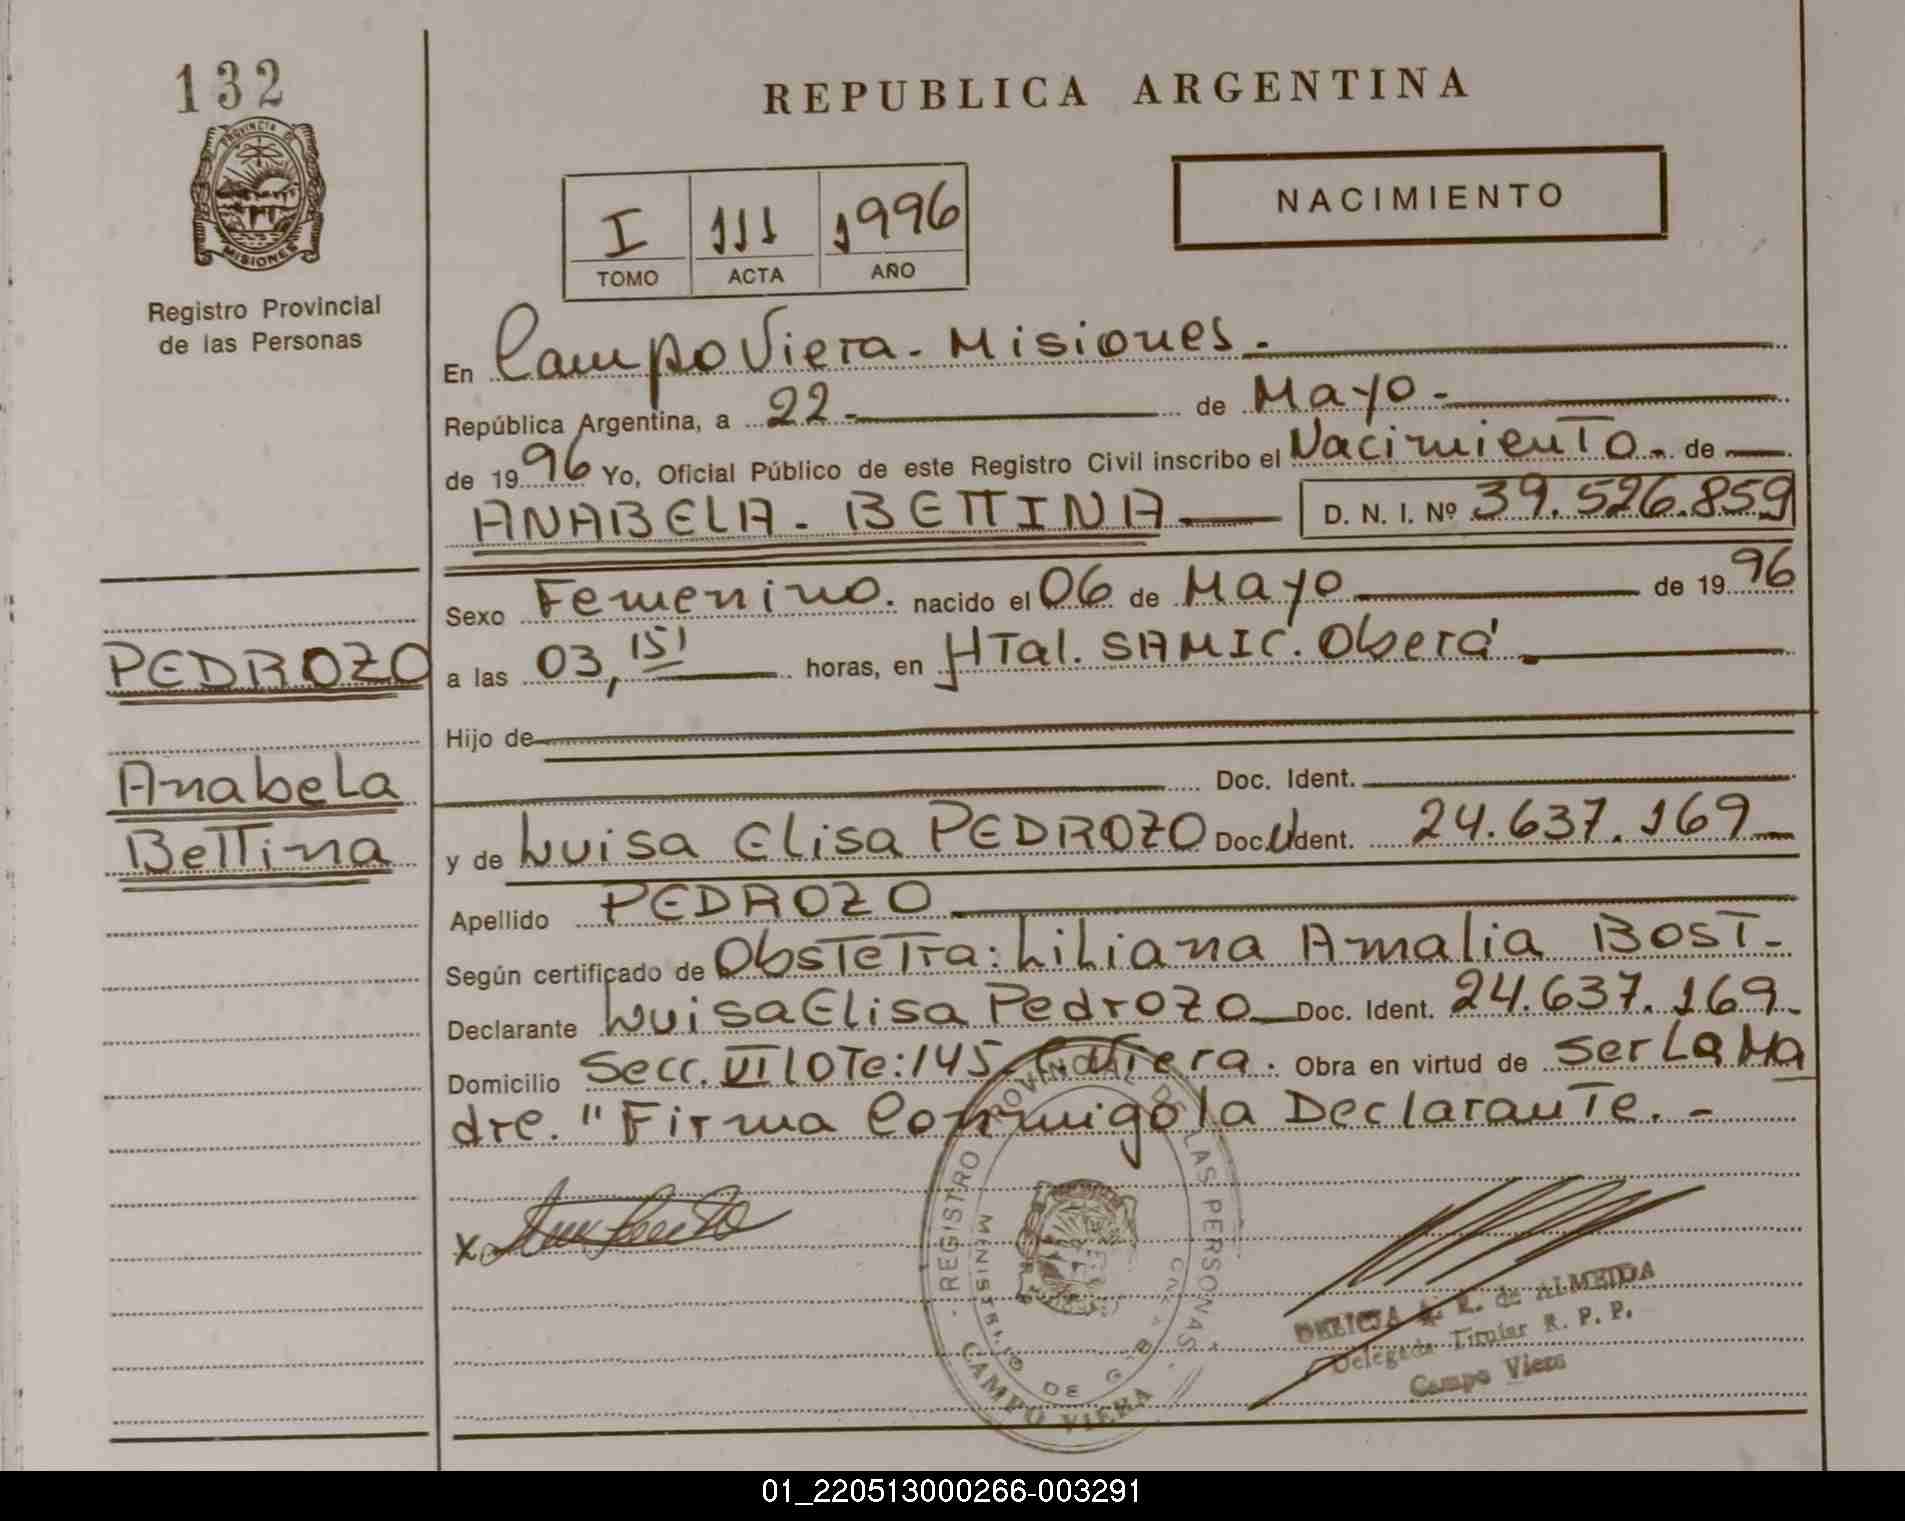 132
PROVINCIA DE
MISIONES
Registro Provincial
de las Personas
REPUBLICA ARGENTINA
I 111 1996
TOMO ACTA AÑO
NACIMIENTO
En Campo Viera - Misiones.-
República Argentina, a 22.- de Mayo.-
de 1996 Yo, Oficial Público de este Registro Civil inscribo el Nacimiento.- de
ANABELA - BETTINA D. N. I. Nº 39.526.859
Sexo Femenino. nacido el 06 de Mayo de 1996
a las 03,15' horas, en HTal. SAMIC. Oberá
Hijo de
Doc. Ident.
y de Luisa Elisa PEDROZO Doc. Ident. 24.637.169
Apellido PEDROZO
Según certificado de ObsteTra: Liliana Amalia BOST-
Declarante Luisa Elisa Pedrozo Doc. Ident. 24.637.169.
Domicilio Secc. VI lote: 145 C. Viera. Obra en virtud de ser La Ma
dre. "Firma Conmigo la Declarante.-
PEDROZO
Anabela
Bettina
x
REGISTRO PROVINCIAL DE LAS PERSONAS
MINISTERIO DE
CAMPO VIERA
DELICIA de ALMEIDA
Delegada Titular R. P. P.
Campo Viera
01_220513000266-003291